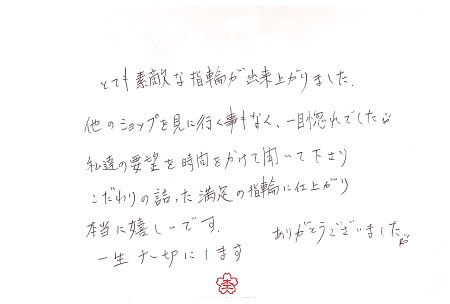 とても素敵な指輪が出来上がりました.
他のショップを見に行く事もなく、一目惚れでした
私達の要望を時間をかけて聞いて下さり
こだわりの詰った満足の指輪に仕上がり
本当に嬉しいです.
ありがとうございました
一生大切にします